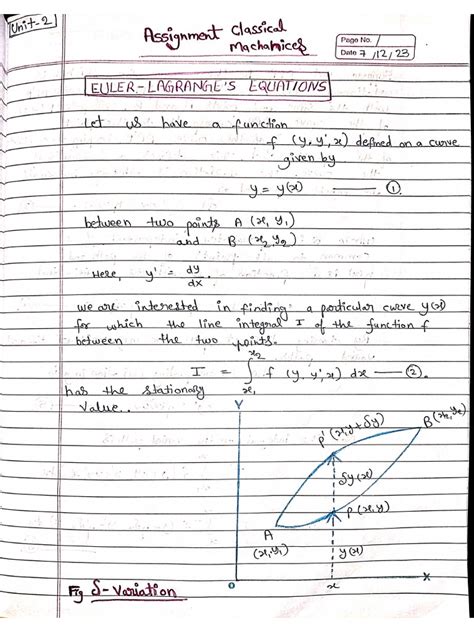 Unit-2
Assignment Classical
Machanices
Page No. /
Date 7/12/23
EULER-LAGRANGE'S EQUATIONS
Let us have a function
f (y, y', x) defined on a curve
given by
y = y(x) —— ①
between two points A (x, y₁)
and B (x₂, y₂)
Here, y' = dy/dx.
we are interested in finding a particular curve y(x)
for which the line integral I of the function f
between the two points.
I = ∫ₓ₁ˣ² f (y, y', x) dx —— ②.
has the stationary
Value..
Y
B(x₂, y₂)
P' (x, y + δy)
δy(x)
P(x, y)
A
(x, y₁)
y(x)
O x X
Fig δ-Variation